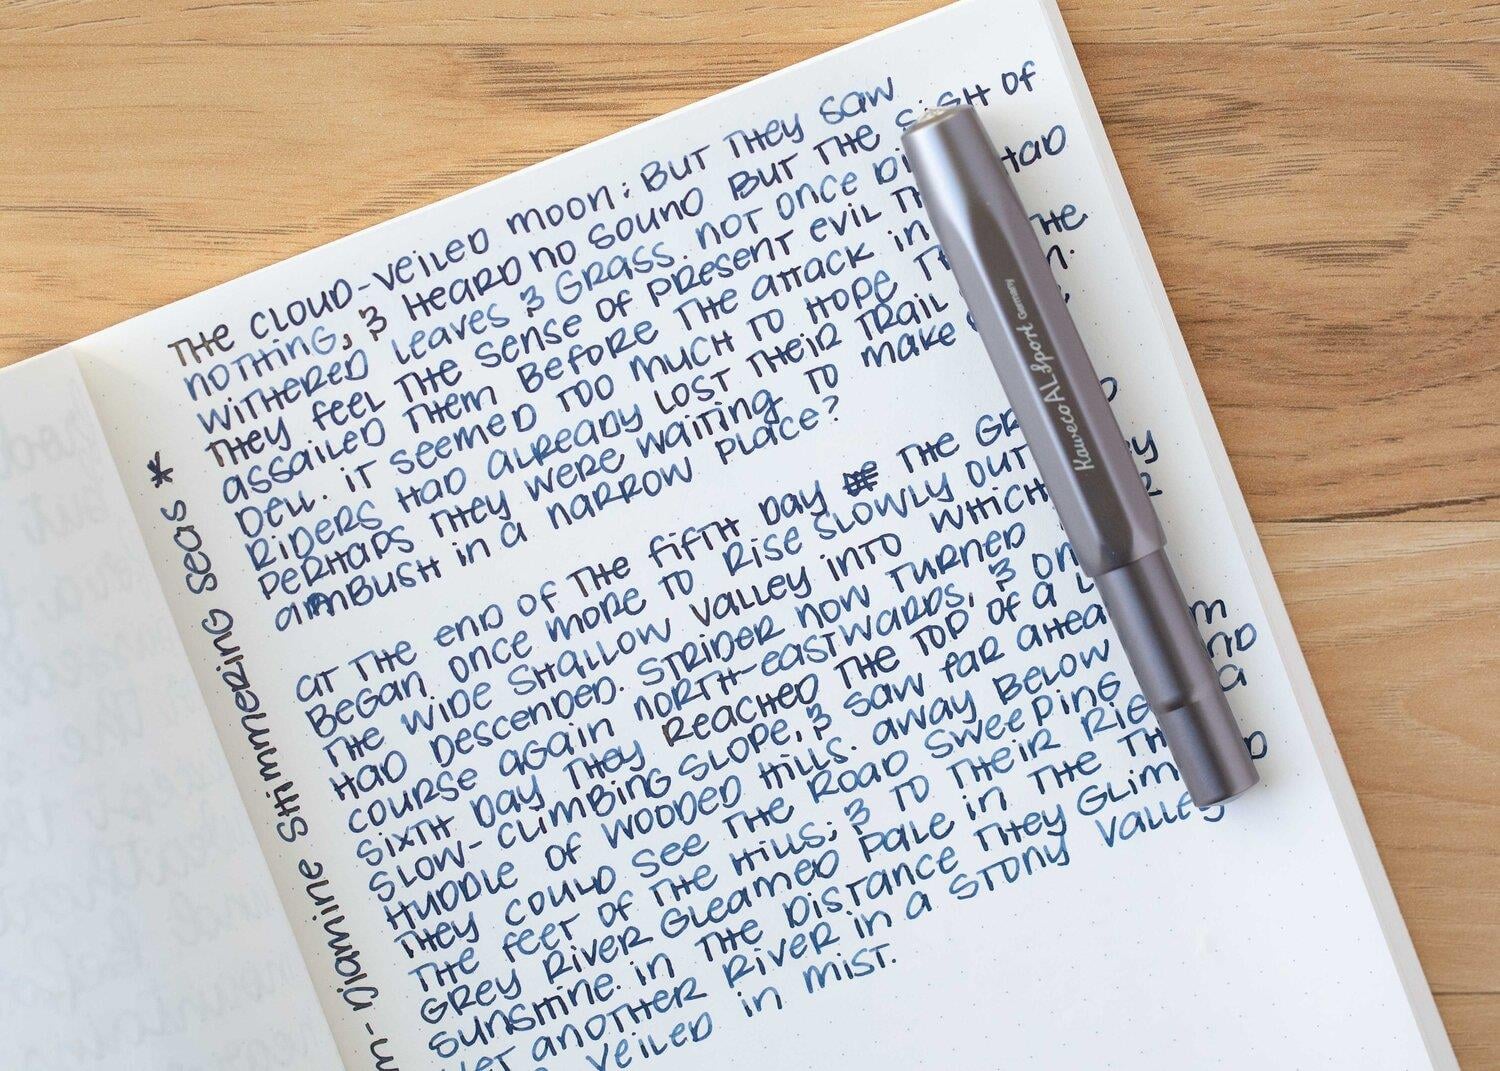 THE CLOUD-VEILED MOON; BUT THEY SAW
NOTHING, & HEARD NO SOUND BUT THE SIGH OF
WITHERED LEAVES & GRASS. NOT ONCE DI HAD
THEY FEEL THE SENSE OF PRESENT EVIL TH
ASSAILED THEM BEFORE THE ATTACK IN THE
DELL. IT SEEMED TOO MUCH TO HOPE TH
RIDERS HAD ALREADY LOST THEIR TRAIL
PERHAPS THEY WERE WAITING TO MAKE
AMBUSH IN A NARROW PLACE?
AT THE END OF THE FIFTH DAY THE GR D
BEGAN ONCE MORE TO RISE SLOWLY OUT
THE WIDE SHALLOW VALLEY INTO WHICH EY
HAD DESCENDED. STRIDER NOW TURNED R
COURSE AGAIN NORTH-EASTWARDS, & ON
SIXTH DAY THEY REACHED THE TOP OF A L
SLOW-CLIMBING SLOPE, & SAW FAR AHEA
HUDDLE OF WOODED HILLS. AWAY BELOW M
THEY COULD SEE THE ROAD SWEEPING ND
THE FEET OF THE HILLS; & TO THEIR RIG A
GREY RIVER GLEAMED PALE IN THE TH
SUNSHINE. IN THE DISTANCE THEY GLIM D
YET ANOTHER RIVER IN A STONY VALLEY
VEILED IN MIST.
m - Diamine Shimmering Seas *
Kaweco AL Sport Germany